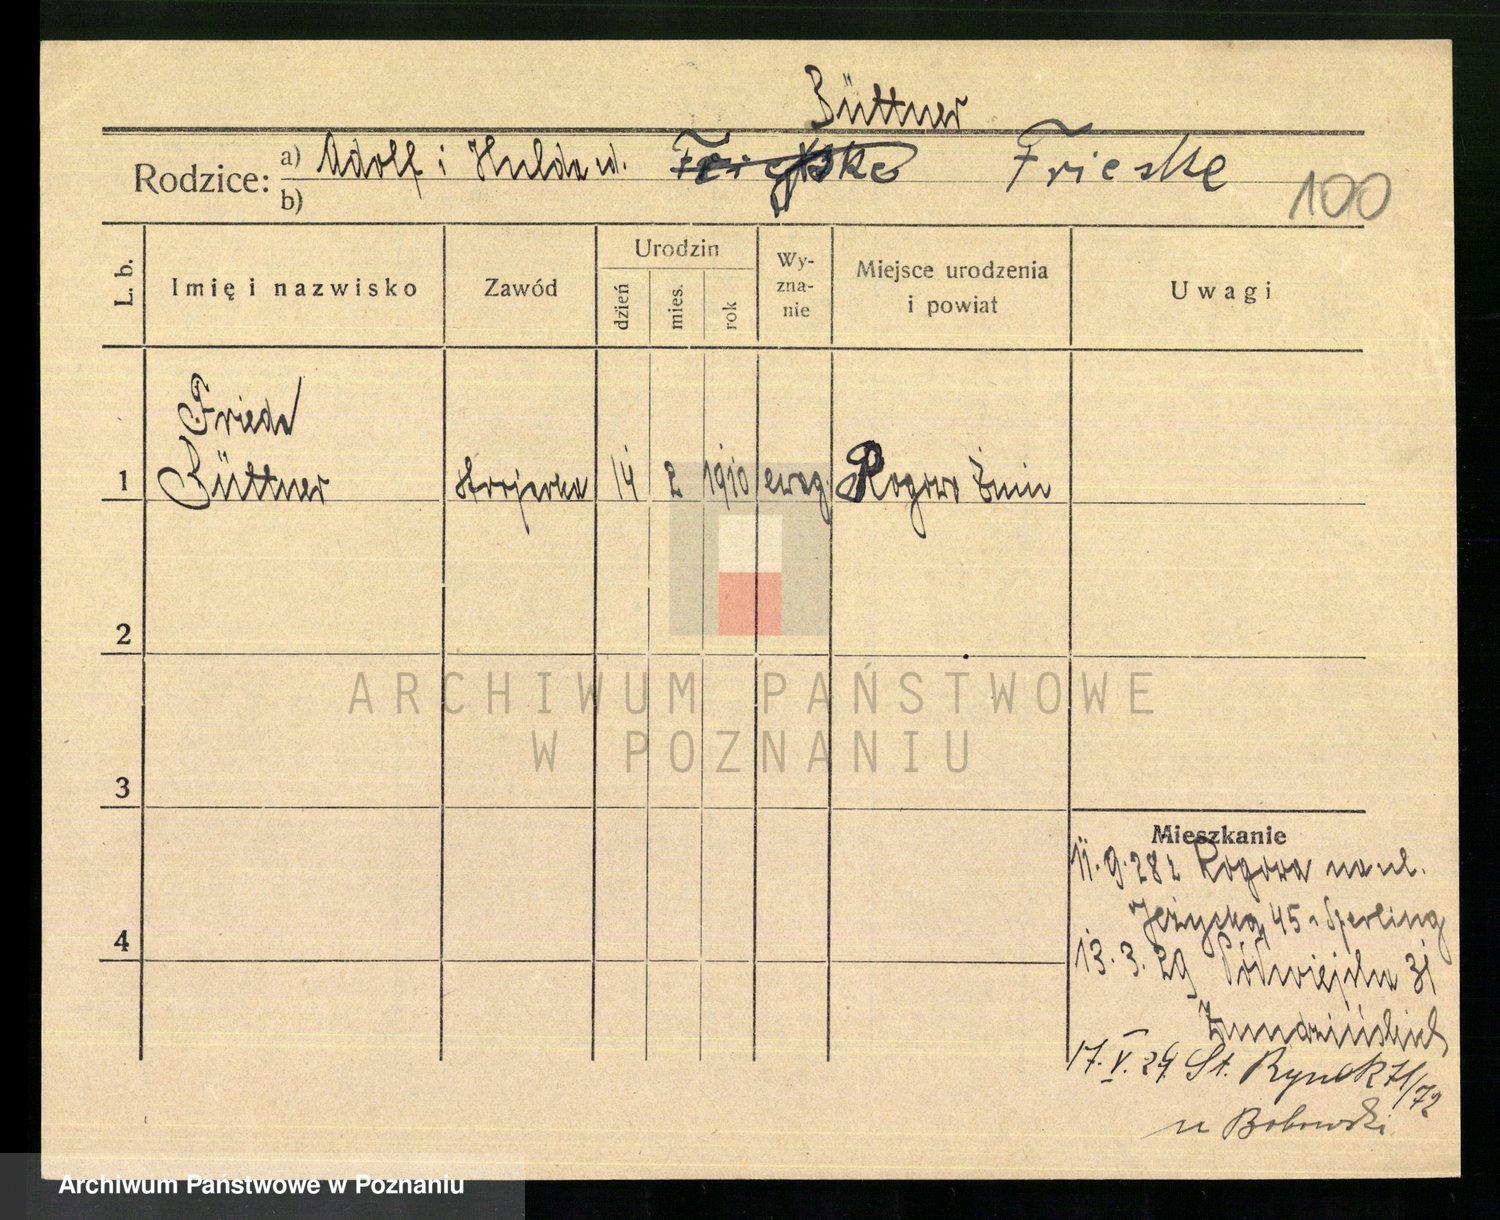 Büttner
Rodzice: a) Adolf i Hulda ur. Frieske Frieske
b)
100
L. b. Imię i nazwisko Zawód Urodzin dzień mies. rok Wyznanie Miejsce urodzenia i powiat Uwagi
Frieda
1 Büttner 14 2 1910 ewag. Rogowo Żnin
2
ARCHIWUM PAŃSTWOWE
W POZNANIU
3
Mieszkanie
11.9.28 z Rogowa na ul.
4 Jeżycką 45 Sperling
13.3.29 Półwiejska 31
17.V.29 St. Rynek 71/72
u Bobowski
Archiwum Państwowe w Poznaniu